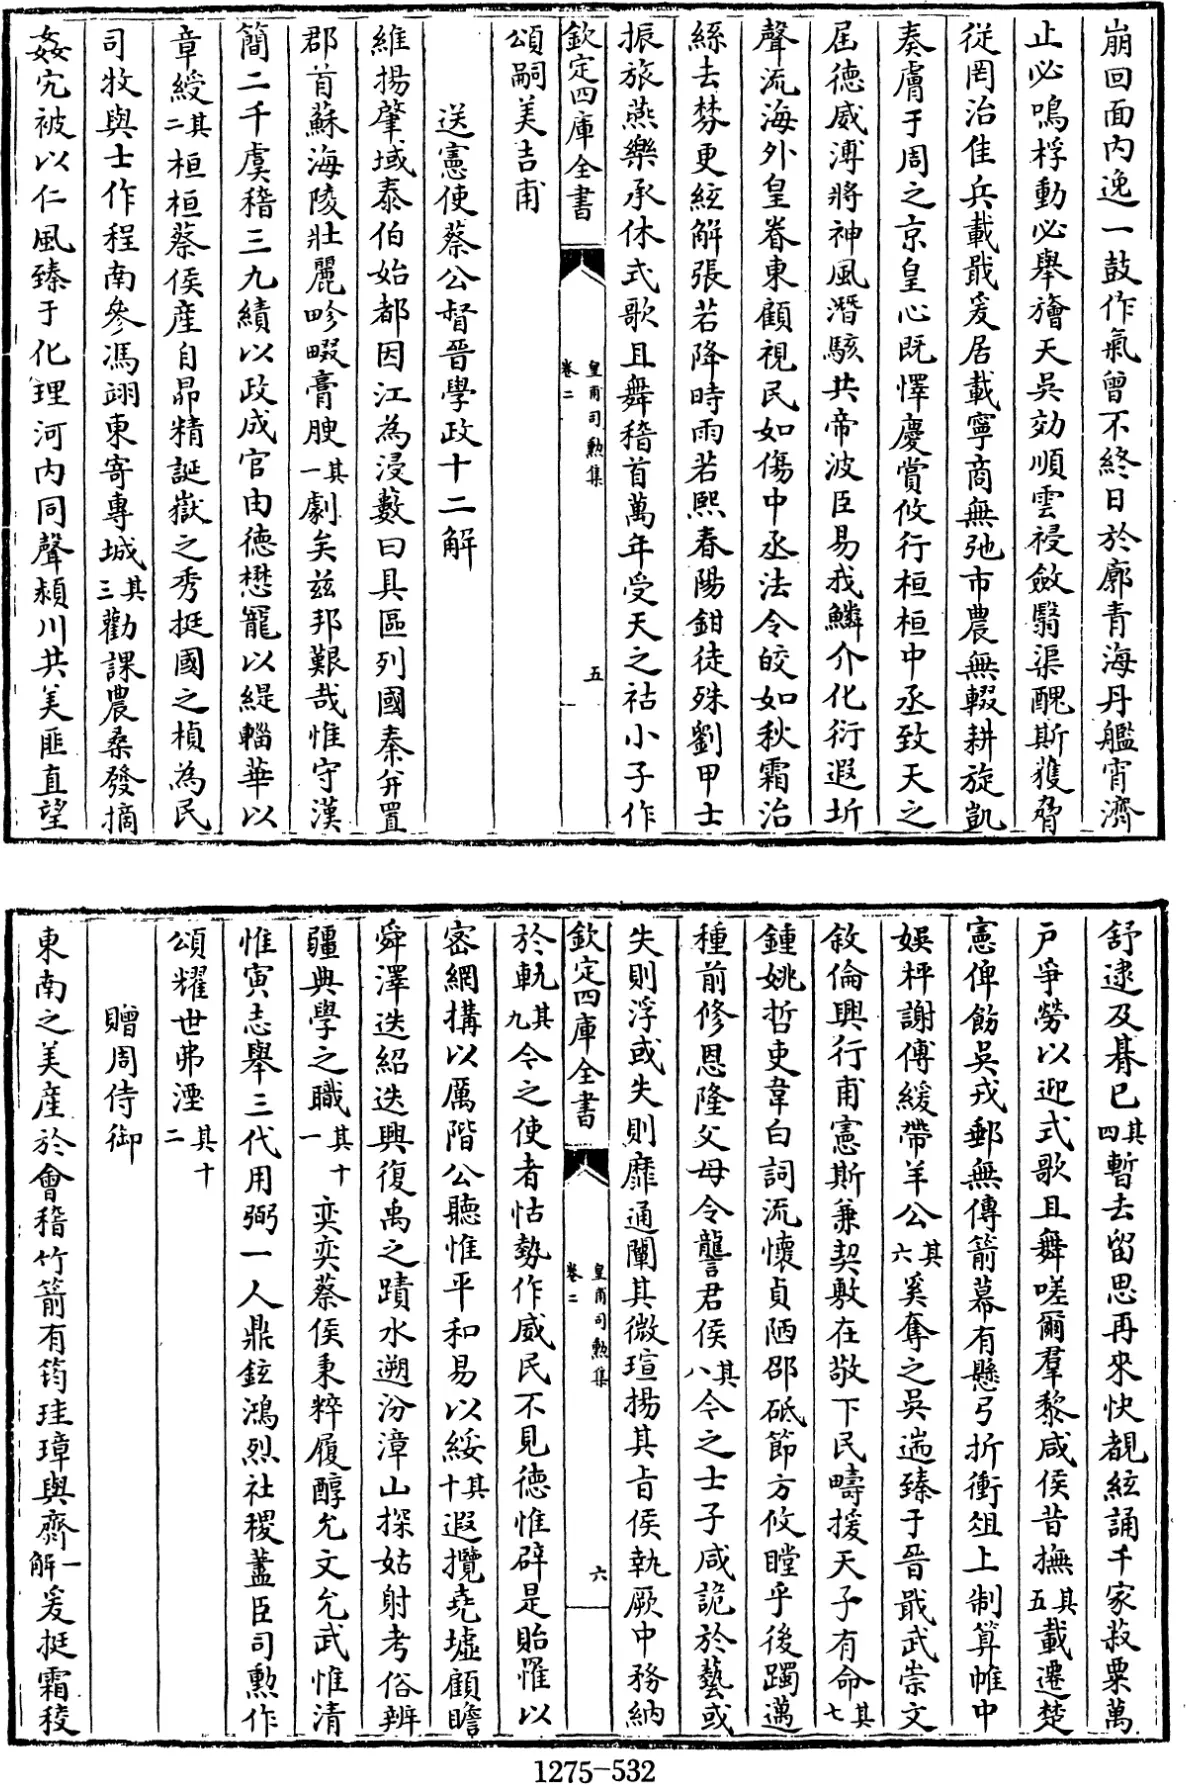 崩回面内逸一鼓作氣曾不終日於廓青海丹艦宵濟
止必鳴桴動必舉旝天吳効順雲祲斂翳渠醜斯獲脅
從罔治佳兵載戢爰居載寧商無弛市農無輟耕旋凱
奏膚于周之京皇心既懌慶賞攸行桓桓中丞致天之
屆德威溥將神風潛駭共帝波臣易我鱗介化衍遐圻
聲流海外皇眷東顧視民如傷中丞法令皎如秋霜治
絲去棼更絃解張若降時雨若熙春陽鉗徒殊劉甲士
振旅燕樂承休式歌且舞稽首萬年受天之祜小子作
欽定四庫全書 皇甫司勲集 卷二 五
頌嗣美吉甫
送憲使蔡公督晉學政十二解
維揚肇域泰伯始都因江為浸藪曰具區列國秦并置
郡首蘇海陵壯麗畛畷膏腴其一劇矣兹邦艱哉惟守漢
簡二千虞稽三九績以政成官由德懋寵以緹輜華以
章綬其二桓桓蔡侯産自昴精誕嶽之秀挺國之楨為民
司牧與士作程南參馮翊東寄專城其三勸課農桑發摘
姦宄被以仁風臻于化理河内同聲潁川共美匪直望
舒逮及朞已其四暫去留思再來快覩絃誦千家菽粟萬
戸爭勞以迎式歌且舞嗟爾羣黎咸侯昔撫其五載遷楚
憲俾飭吳戎郵無傳箭幕有懸弓折衝俎上制算帷中
娛枰謝傅緩帶羊公其六奚奪之吳遄臻于晉戢武崇文
敘倫興行甫憲斯兼契敷在敬下民疇援天子有命其七
鍾姚哲吏韋白詞流懷貞陋邵砥節方攸瞠乎後躅邁
種前修恩隆父母令讋君侯其八今之士子咸詭於藝或
失則浮或失則靡通闡其微瑄揚其旨侯執厥中務納
欽定四庫全書 皇甫司勲集 卷二 六
於軌其九今之使者怙勢作威民不見德惟辟是貽罹以
密網搆以厲階公聽惟平和易以綏其十遐攬堯墟顧瞻
舜澤迭紹迭興復禹之蹟水遡汾漳山探姑射考俗辨
疆典學之職其十一奕奕蔡侯秉粹履醇允文允武惟清
惟寅志舉三代用弼一人鼎鉉鴻烈社稷藎臣司勲作
頌耀世弗湮其十二
贈周侍御
東南之美産於會稽竹箭有筠珪璋與齊一解爰挺霜稜
1275-532